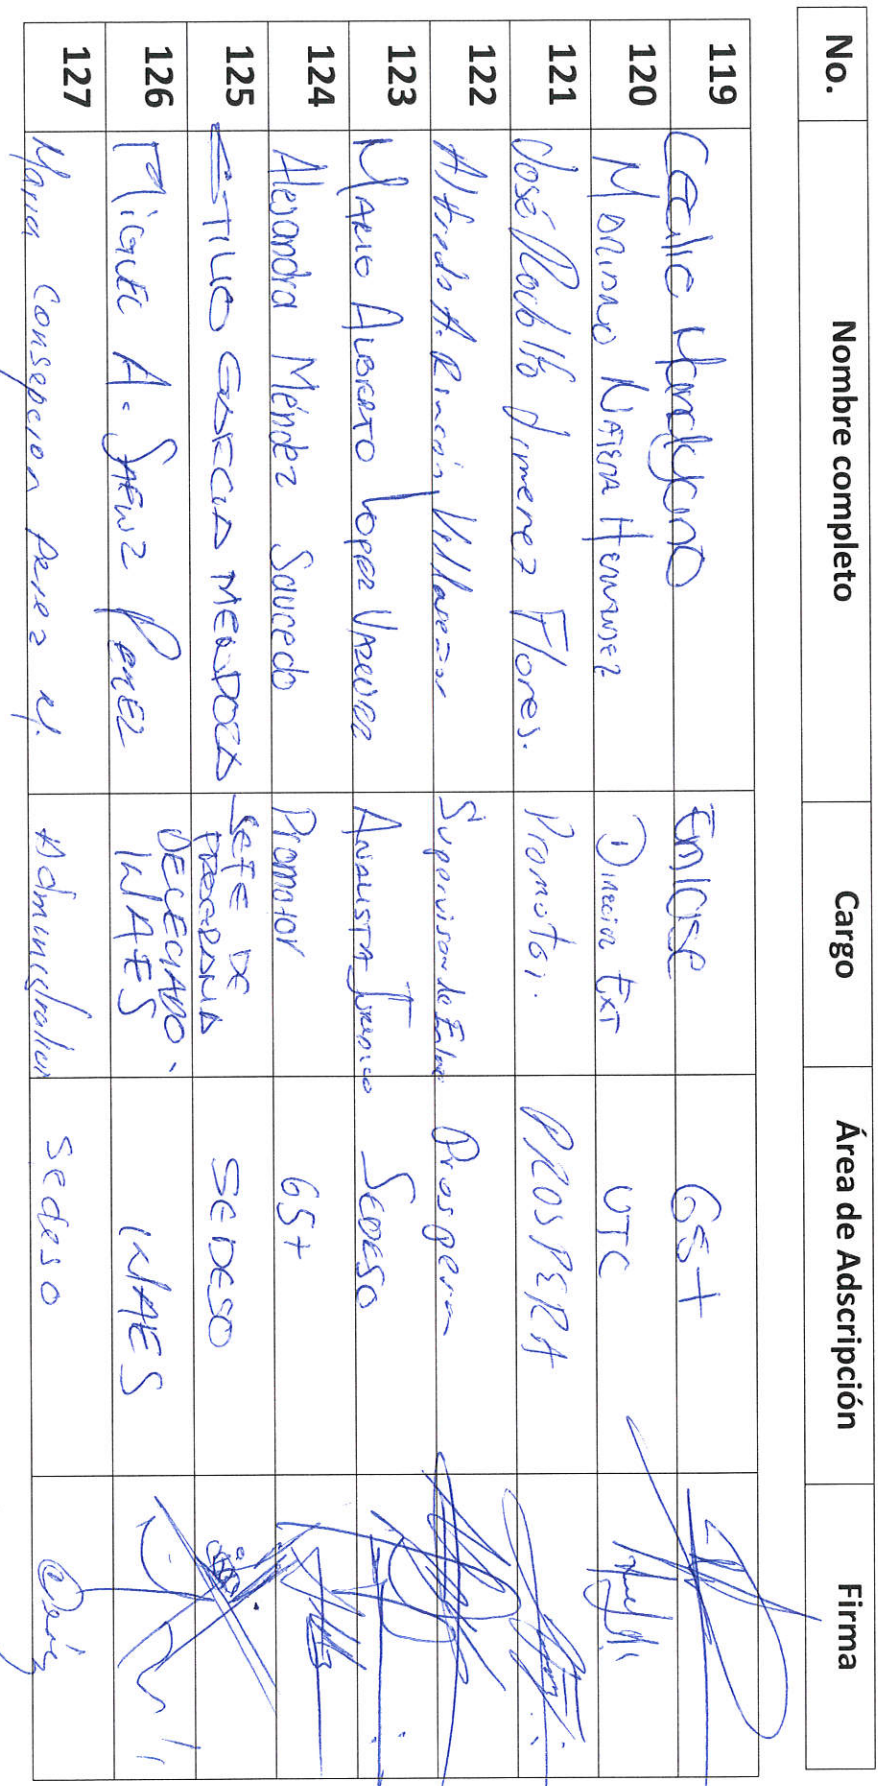 No. Nombre completo Cargo Área de Adscripción Firma
119 Enlace 65+
120 Mariano Nájera Hernandez Director Ext UTC
121 José Rodolfo Jimenez Flores. Promotor. PROSPERA
122 Alfredo A. Rincón Villaseñor Supervisor de Enlace Prospera
123 Mario Alberto Lopez Jurídico Analista SEDESO
124 Alejandra Méndez Saucedo Promotor 65+
125 GARCIA MENDOZA JEFE DE PROGRAMA SEDESO
126 MIGUEL A. SAENZ PEREZ DELEGADO. INAES INAES
127 Maria Consepcion Perez M. Administrativo Sedeso